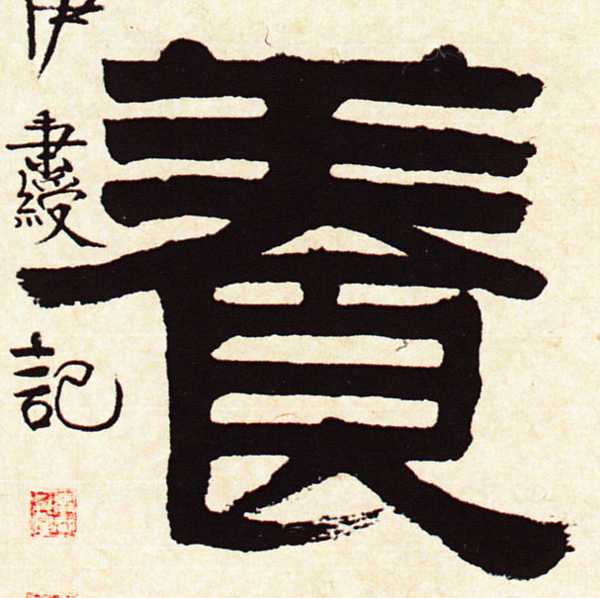 養
伊秉綬記